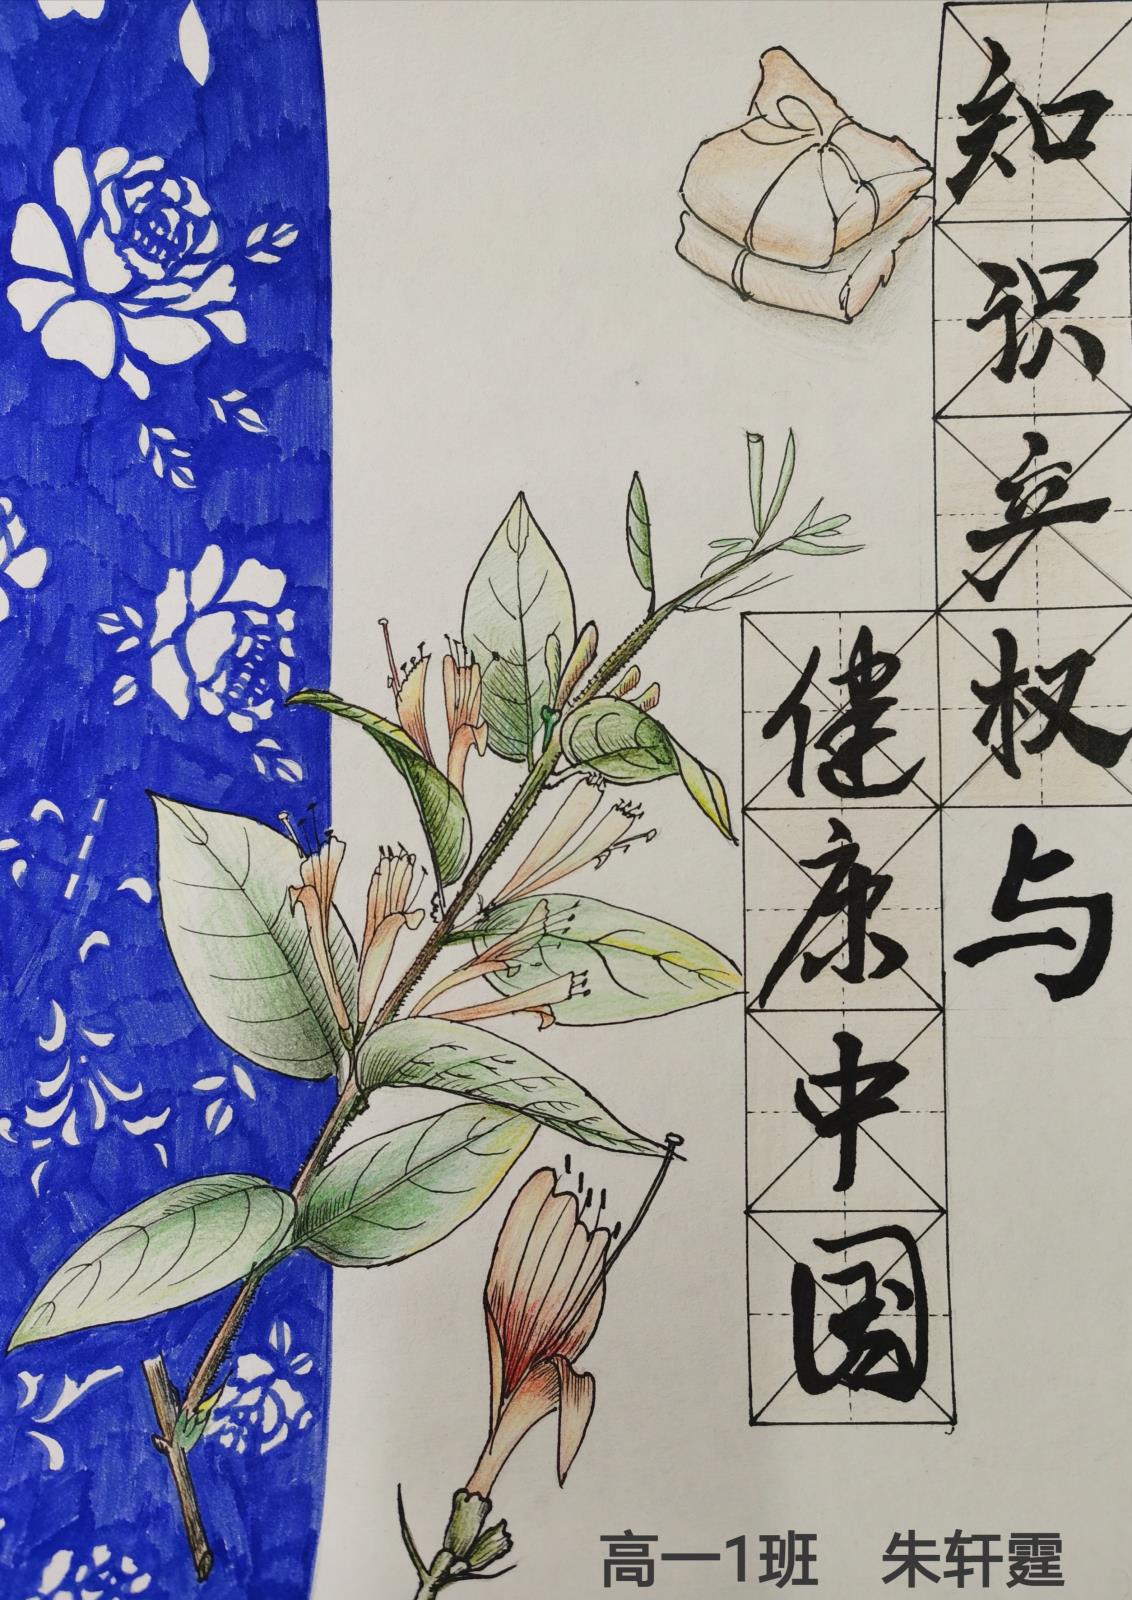 知识产权与
健康中国
高一1班 朱轩霆